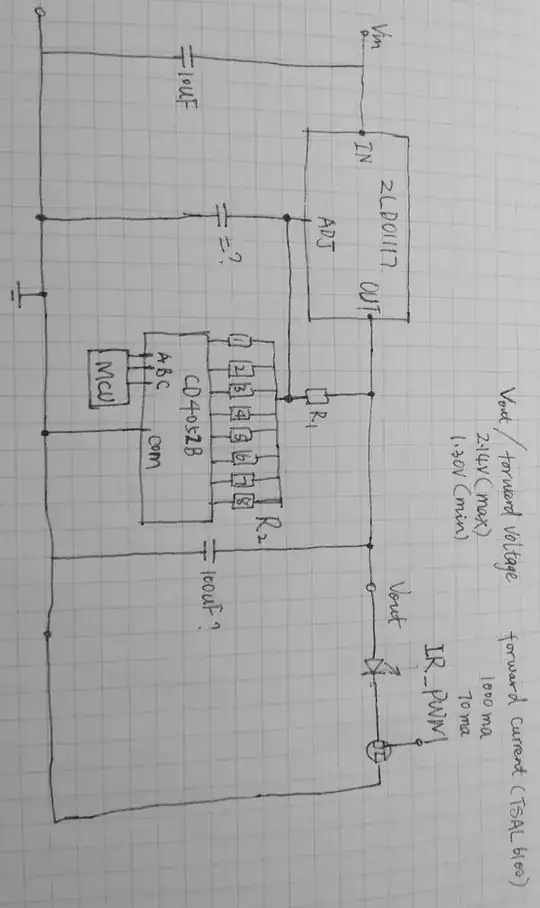 Vin
10uF
IN
ZLDO1117
ADJ
OUT
=?
R1
1
2
3
4
5
6
7
8
R2
A
B
C
MCU
CD4052B
COM
100uF?
Vout
IR_PWM
Vout / forward voltage
2.14V (max)
1.30V (min)
forward current (TSAL6100)
1000ma
70ma